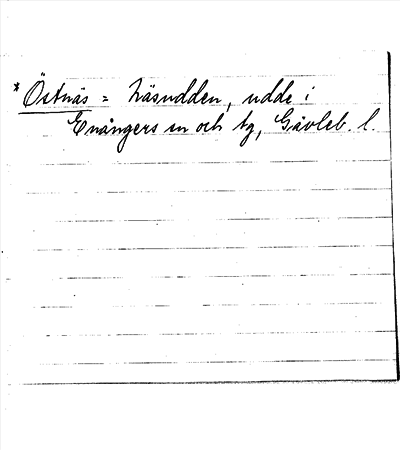 * Östnäs = Näsudden, udde i
Enångers sn och tg, Gävleb. l.